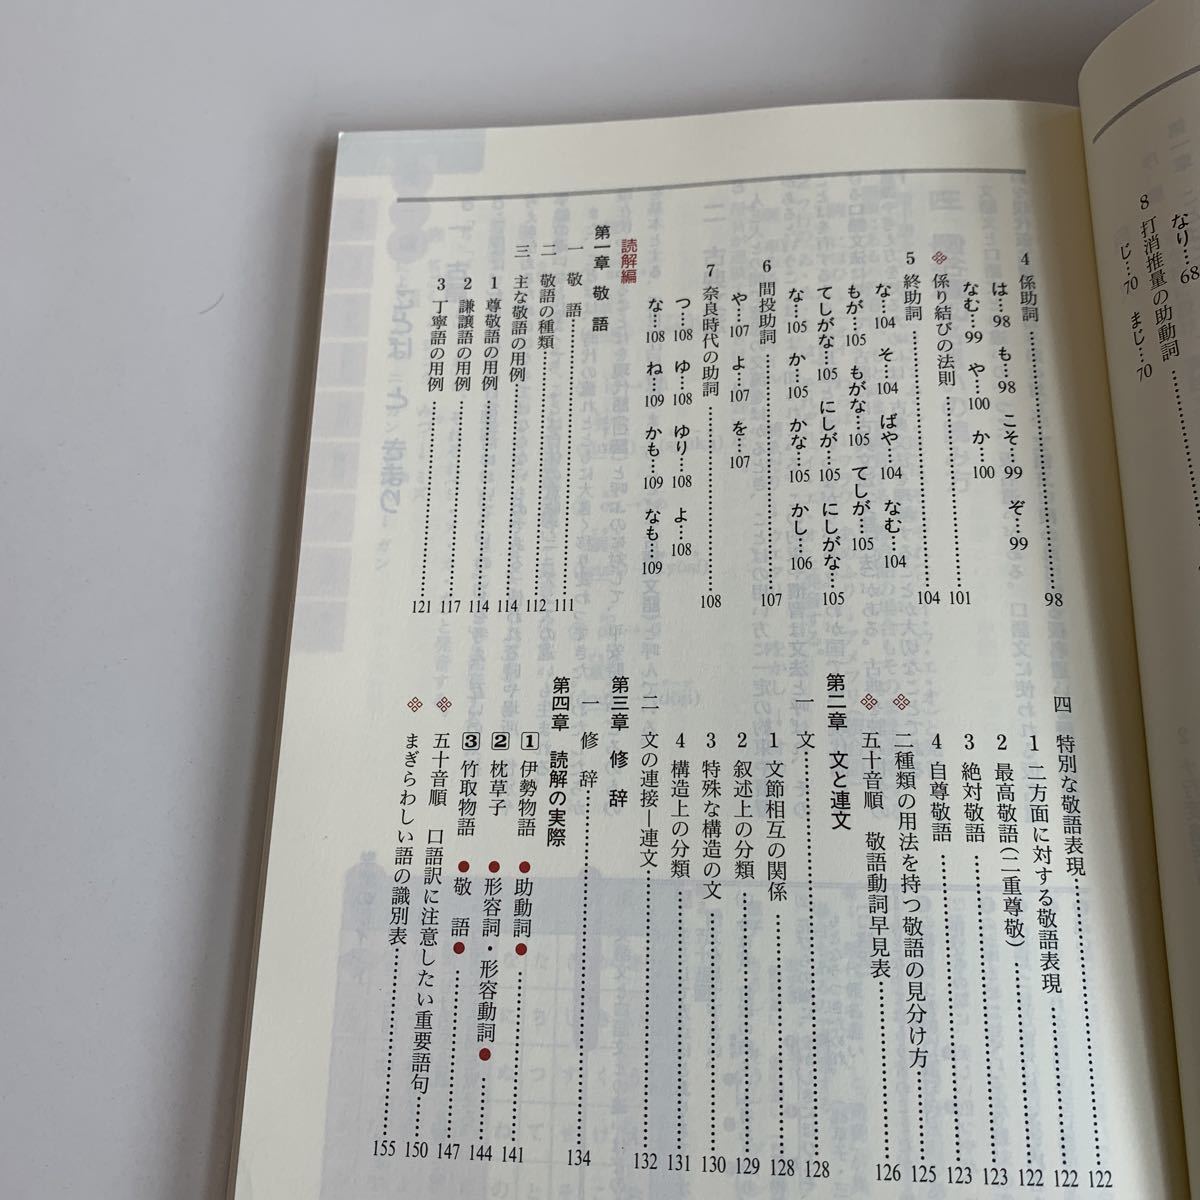 なり…68
8 打消推量の助動詞
じ…70 まじ…70
4 係助詞……98
は…98 も…98 こそ…99 ぞ…99
なむ…99 や…100 か…100
係り結びの法則……101
5 終助詞……104
な…104 そ…104 ばや…104 なむ…104
もが…105 もがな…105 てしが…105
てしがな…105 にしが…105 にしがな…105
な…105 か…105 かな…105 かし…106
6 間投助詞……107
や…107 よ…107 を…107
7 奈良時代の助詞……108
つ…108 ゆ…108 ゆり…108 よ…108
な…108 ね…109 かも…109 なも…109
読解編
第一章 敬語
一 敬語……111
二 敬語の種類……112
三 主な敬語の用例……114
1 尊敬語の用例……114
2 謙譲語の用例……117
3 丁寧語の用例……121
四 特別な敬語表現……122
1 二方面に対する敬語表現……122
2 最高敬語(二重尊敬)……122
3 絶対敬語……123
4 自尊敬語……123
二種類の用法を持つ敬語の見分け方……125
五十音順 敬語動詞早見表……126
第二章 文と連文
一 文……128
1 文節相互の関係……128
2 叙述上の分類……129
3 特殊な構造の文……130
4 構造上の分類……131
二 文の連接―連文……132
第三章 修辞
一 修辞……134
第四章 読解の実際
1 伊勢物語 ●助動詞●……141
2 枕草子 ●形容詞・形容動詞●……144
3 竹取物語 ●敬語●……147
五十音順 口語訳に注意したい重要語句……150
まぎらわしい語の識別表……155